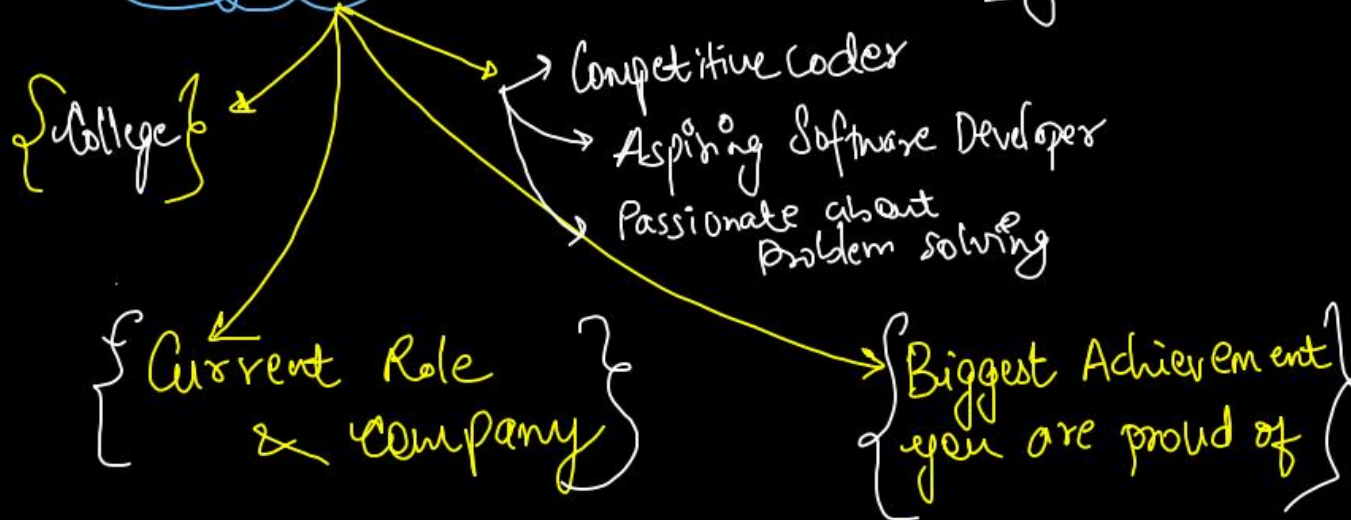 Competitive Coder
{College}
Aspiring Software Developer
Passionate about
problem solving
{Current Role
& company}
{Biggest Achievement
you are proud of}